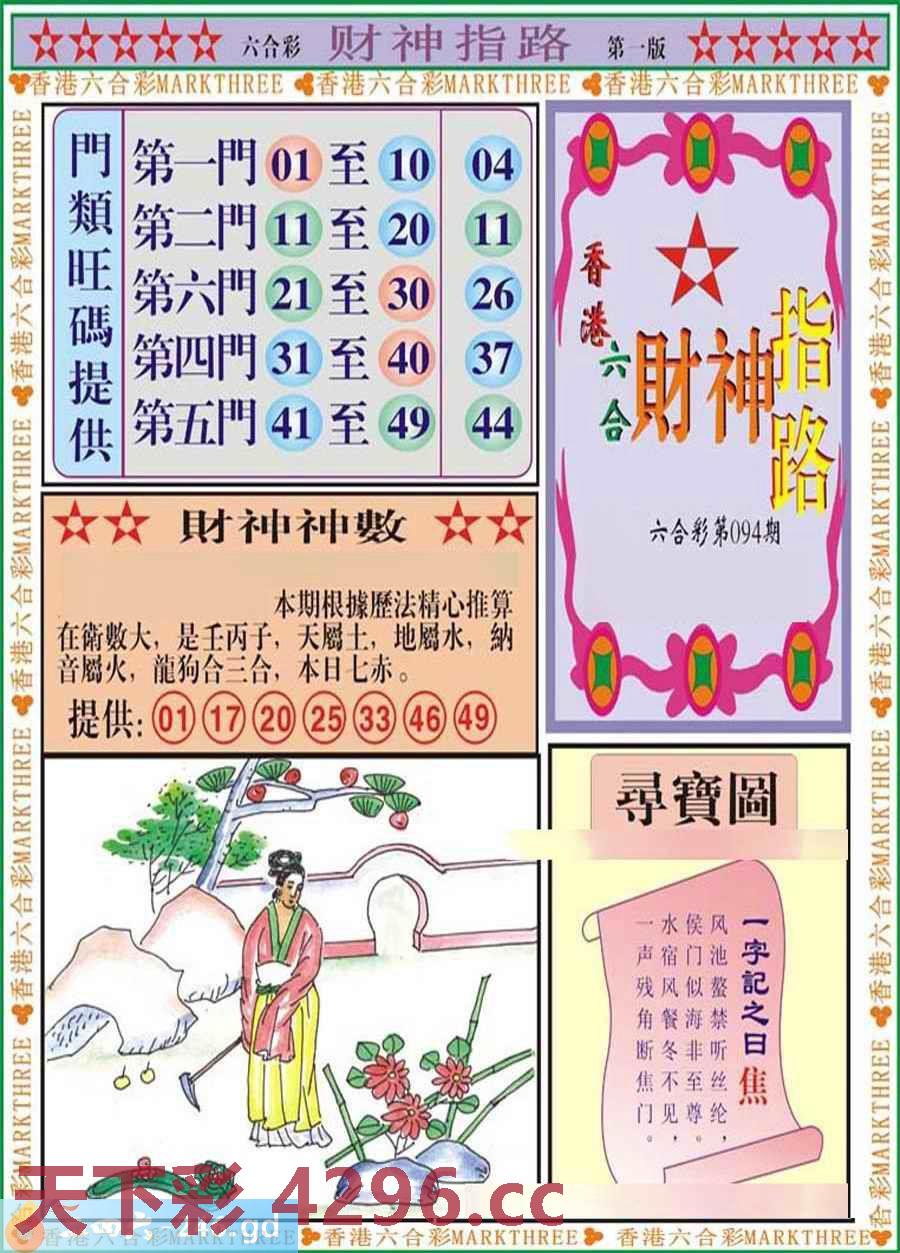 六合彩 财神指路 第一版
香港六合彩MARKTHREE 香港六合彩MARKTHREE 香港六合彩MARKTHREE
門類旺碼提供
第一門 01 至 10 04
第二門 11 至 20 11
第六門 21 至 30 26
第四門 31 至 40 37
第五門 41 至 49 44
香港六合
財神指路
六合彩第094期
財神神數
本期根據歷法精心推算
在衛數大，是壬丙子，天屬土，地屬水，納
音屬火，龍狗合三合，本日七赤。
提供: 01 17 20 25 33 46 49
尋寶圖
一字記之曰 焦
风池螯禁听丝纶，
侯门似海非至尊。
水宿风餐冬不见，
一声残角断焦门。
天下彩 4296.cc
香港六合彩MARKTHREE 香港六合彩MARKTHREE